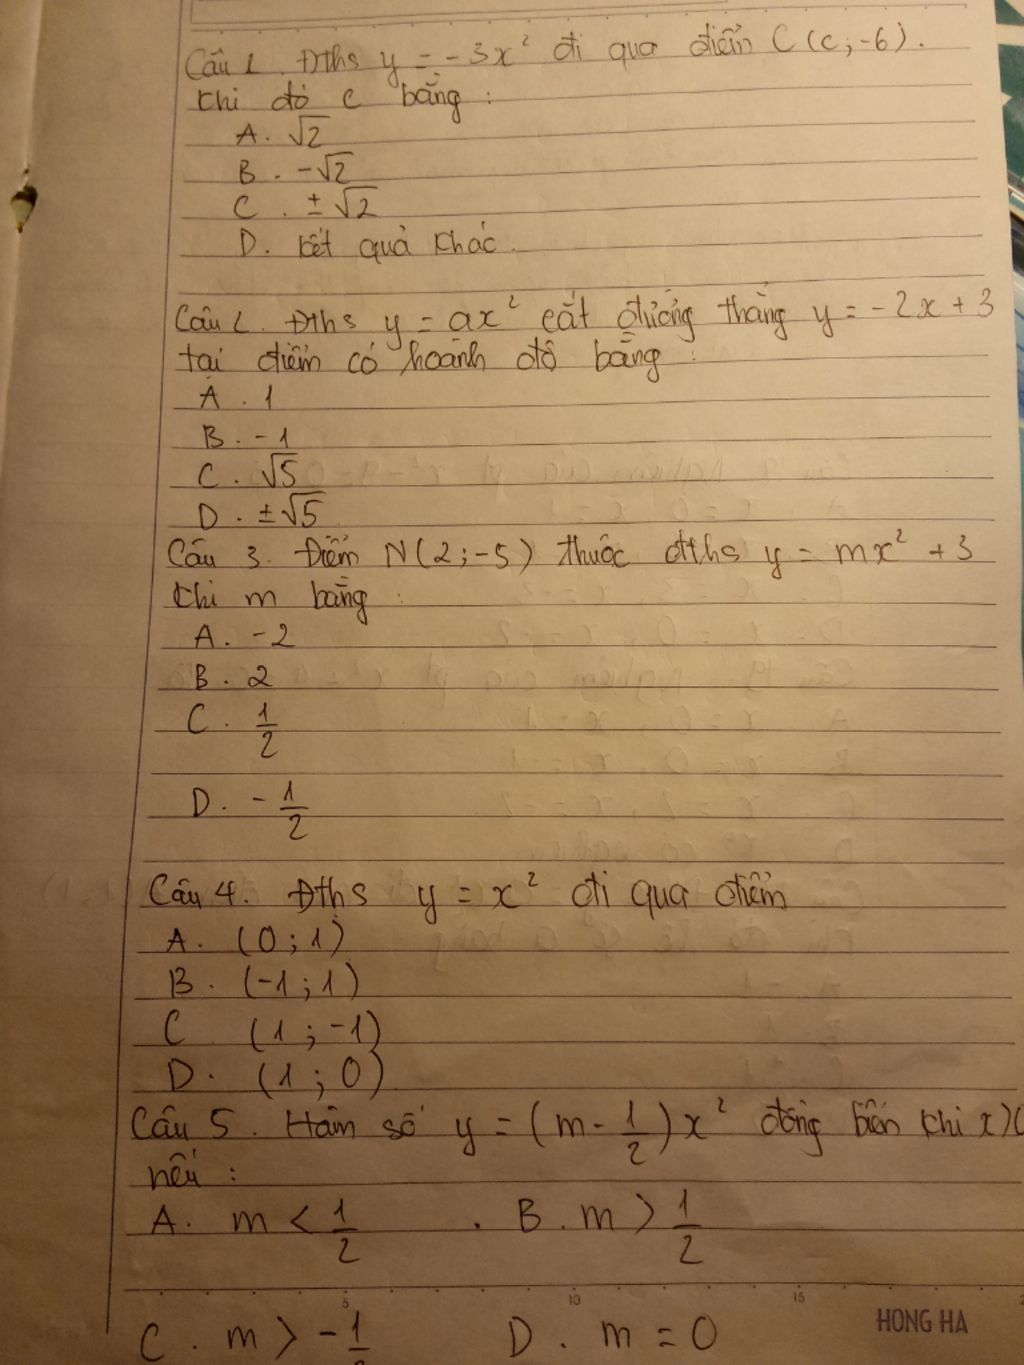 Câu 1. Đths y = -3x² đi qua điểm C (c; -6).
Khi đó c bằng :
A. √2
B. -√2
C. ±√2
D. kết quả khác.
Câu 2. Đths y = ax² cắt đường thẳng y = -2x + 3
tại điểm có hoành độ bằng :
A. 1
B. -1
C. √5
D. ±√5
Câu 3. Điểm N(2; -5) thuộc đths y = mx² + 3
khi m bằng :
A. -2
B. 2
C. 1/2
D. -1/2
Câu 4. Đths y = x² đi qua điểm
A. (0; 1)
B. (-1; 1)
C (1; -1)
D. (1; 0)
Câu 5. Hàm số y = (m - 1/2)x² đồng biến khi x
nếu :
A. m < 1/2 . B. m > 1/2
5 10 15
HONG HA
C. m > -1/2 D. m = 0